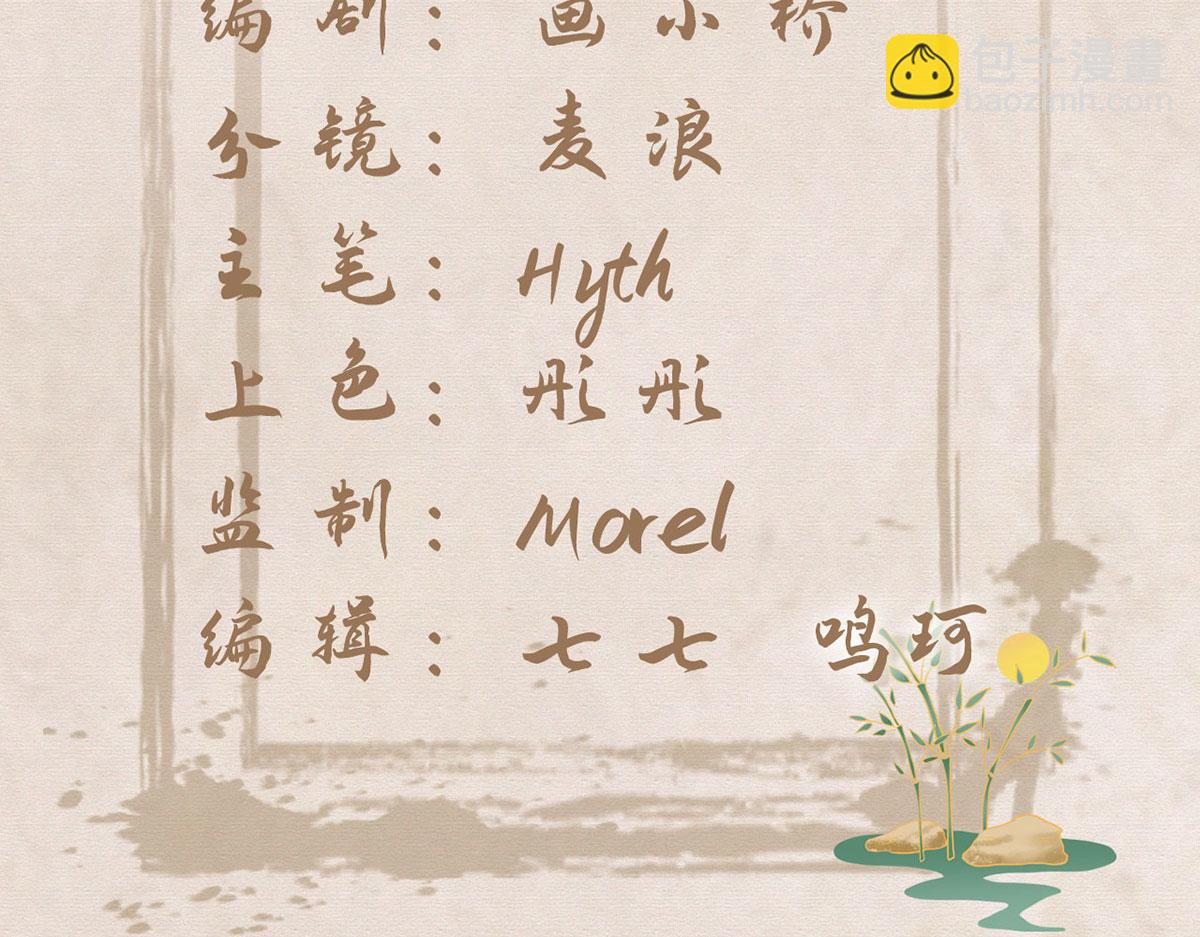 编剧：画小桥
包子漫畫
baozimh.com
分镜：麦浪
主笔：Hyth
上色：彤彤
监制：Morel
编辑：七七 鸣珂